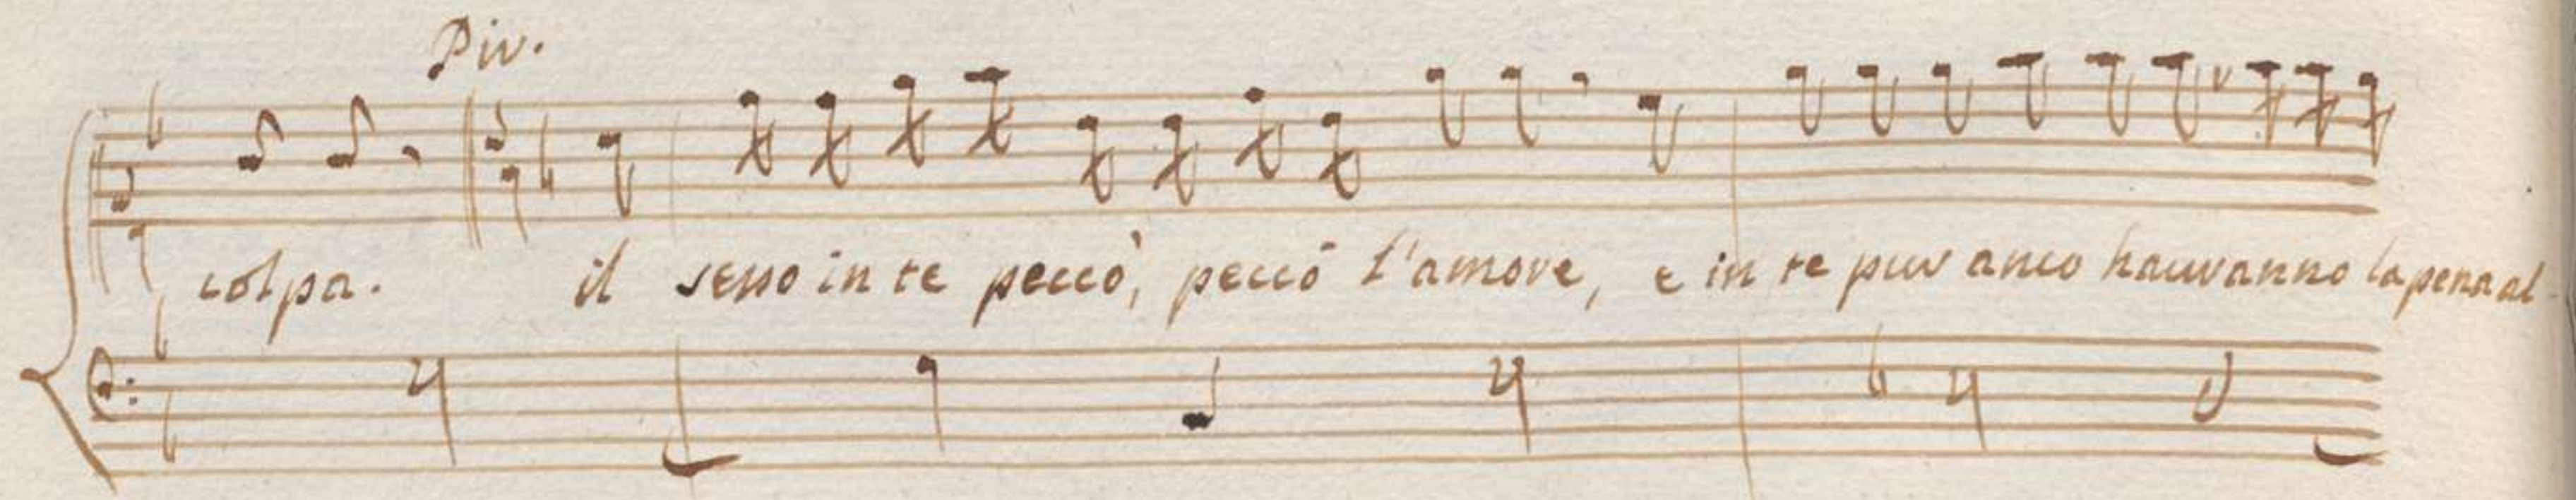 Pir.
colpa. il sesso in te peccò, peccò l'amore, e in te pur anco hauranno la pena al-